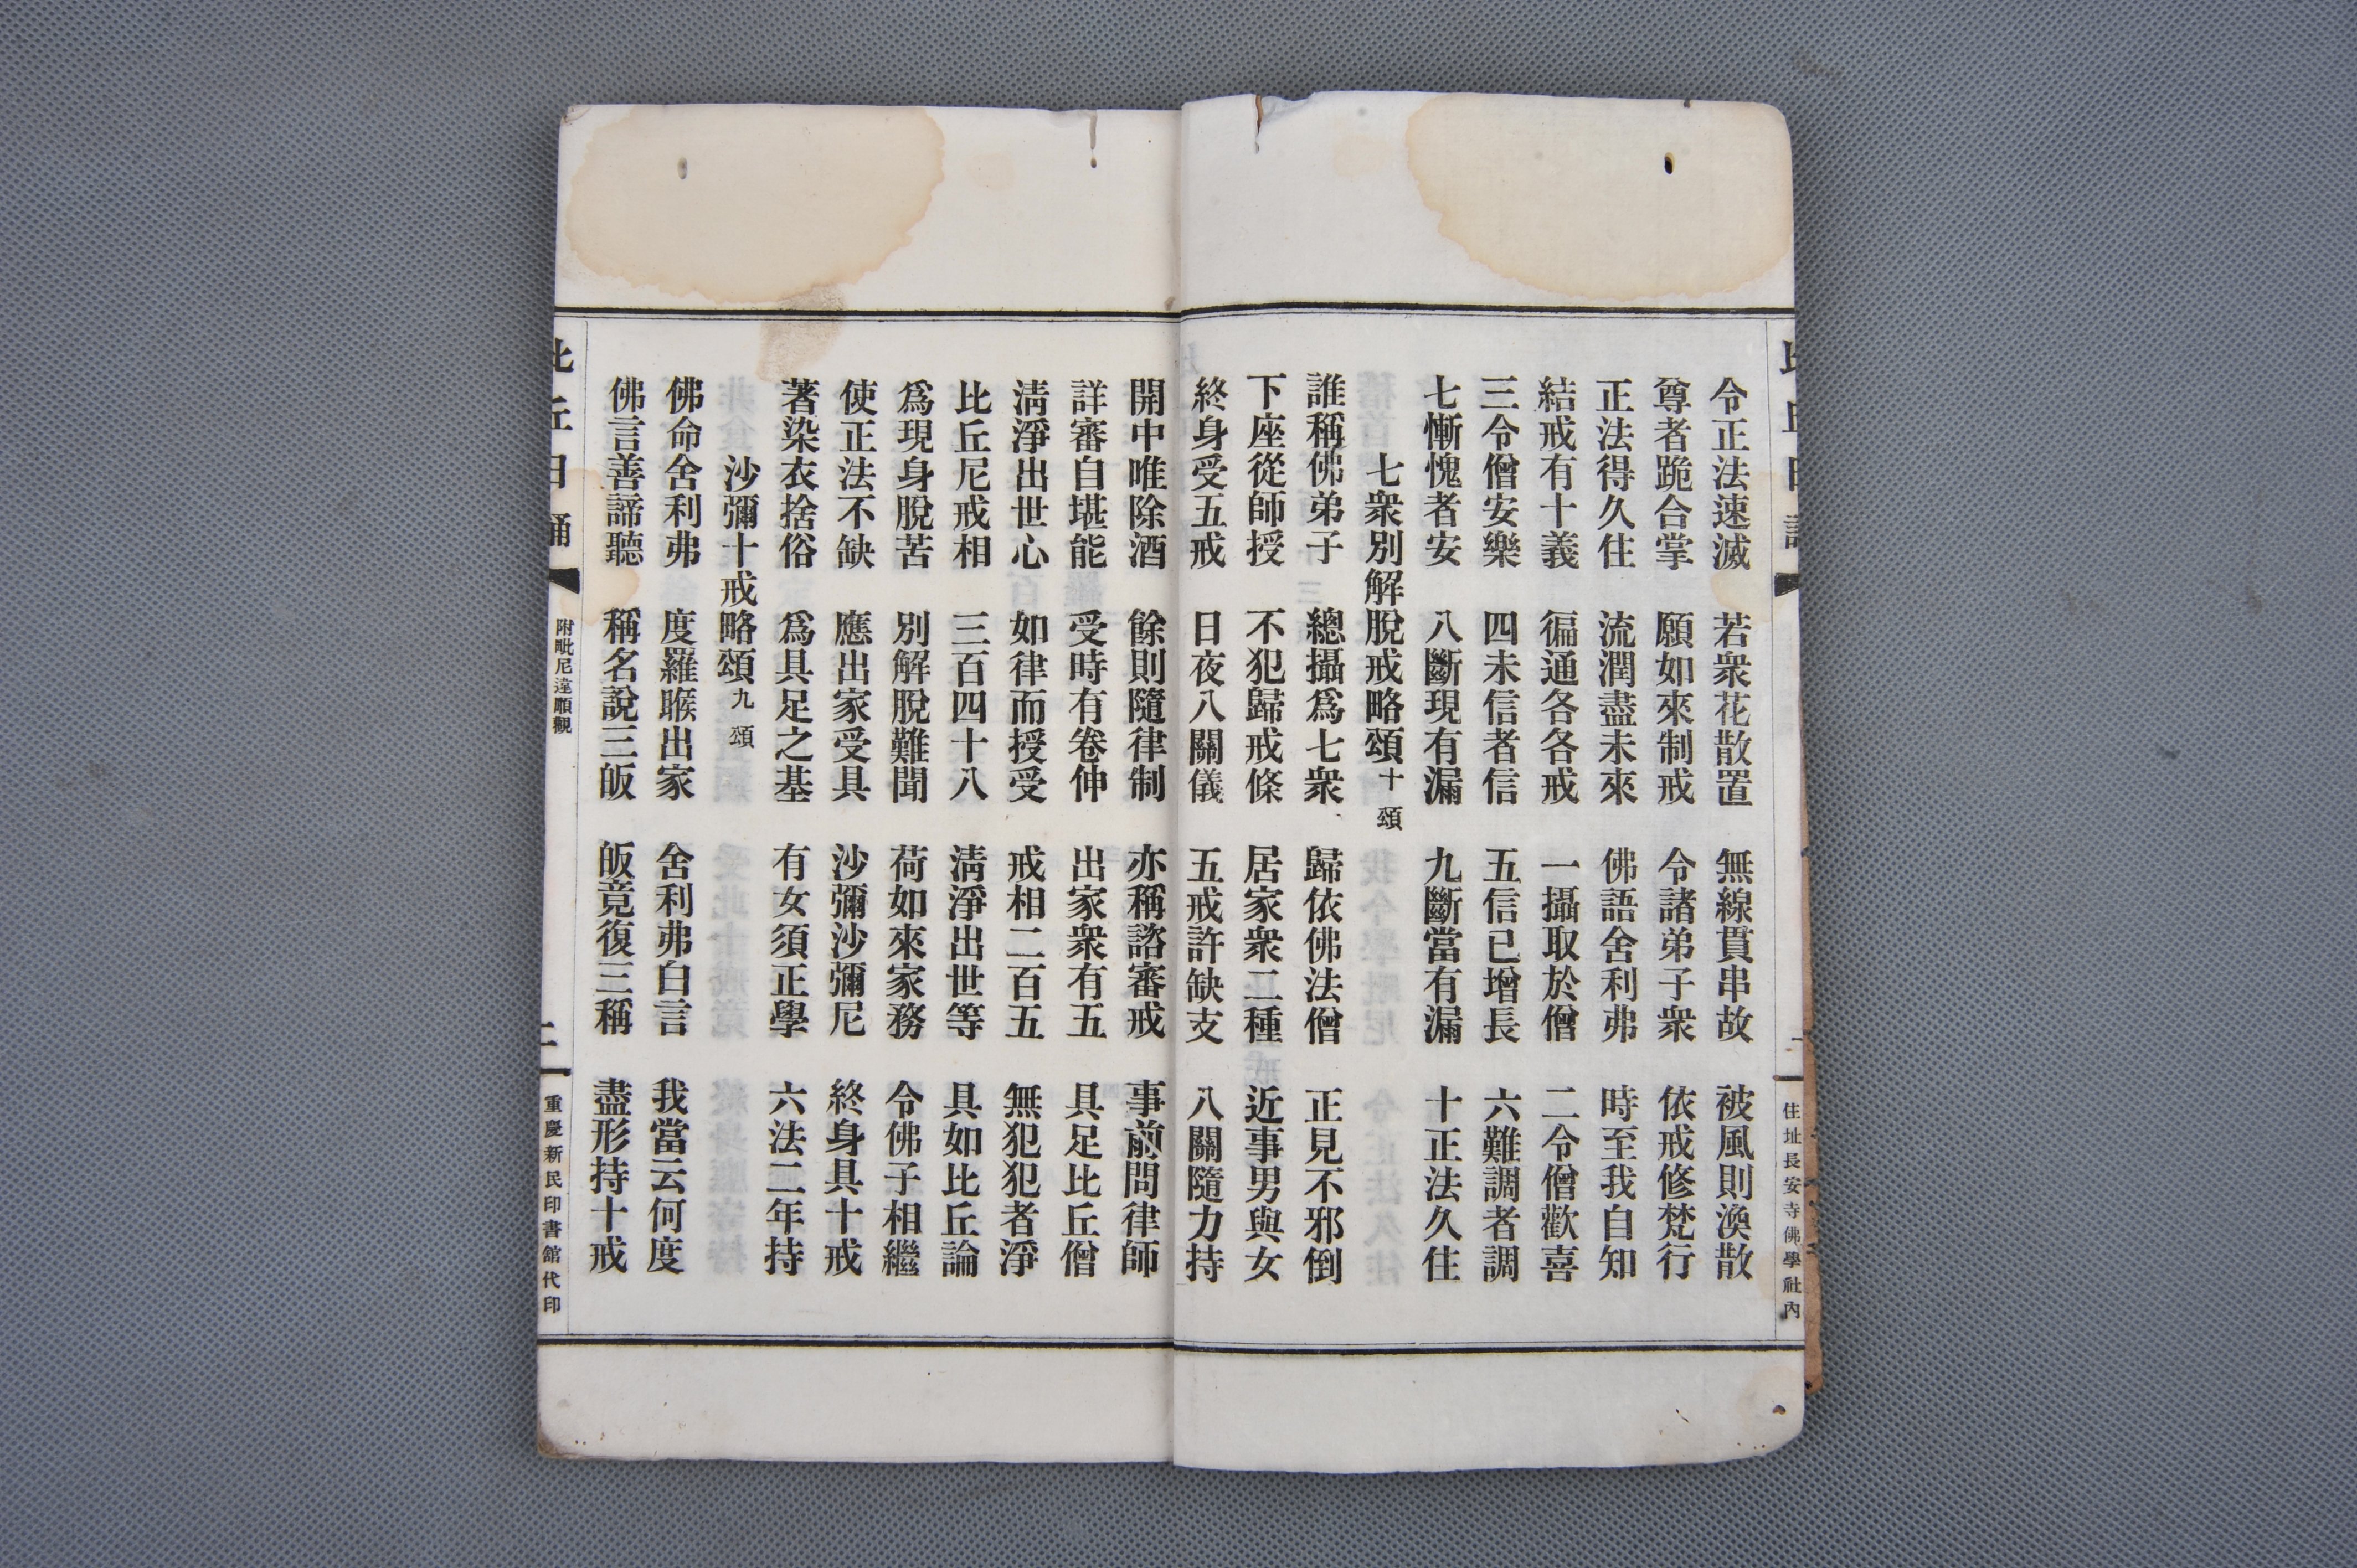 令正法速滅　若衆花散置　無線貫串故　被風則渙散
尊者跪合掌　願如來制戒　令諸弟子衆　依戒修梵行
正法得久住　流潤盡未來　佛語舍利弗　時至我自知
結戒有十義　徧通各各戒　一攝取於僧　二令僧歡喜
三令僧安樂　四未信者信　五信已增長　六難調者調
七慚愧者安　八斷現有漏　九斷當有漏　十正法久住
七衆別解脫戒略頌 十頌
誰稱佛弟子　總攝爲七衆　歸依佛法僧　正見不邪倒
下座從師授　不犯歸戒條　居家衆二種　近事男與女
終身受五戒　日夜八關儀　五戒許缺支　八關隨力持
開中唯除酒　餘則隨律制　亦稱諮審戒　事前問律師
詳審自堪能　受時有卷伸　出家衆有五　具足比丘僧
淸淨出世心　如律而授受　戒相二百五　無犯犯者淨
比丘尼戒相　三百四十八　淸淨出世等　具如比丘論
爲現身脫苦　別解脫難聞　荷如來家務　令佛子相繼
使正法不缺　應出家受具　沙彌沙彌尼　終身具十戒
著染衣捨俗　爲具足之基　有女須正學　六法二年持
沙彌十戒略頌 九頌
佛命舍利弗　度羅睺出家　舍利弗白言　我當云何度
佛言善諦聽　稱名說三皈　皈竟復三稱　盡形持十戒
比丘日誦
附毗尼違順觀
二
重慶新民印書館代印
住址長安寺佛學社內